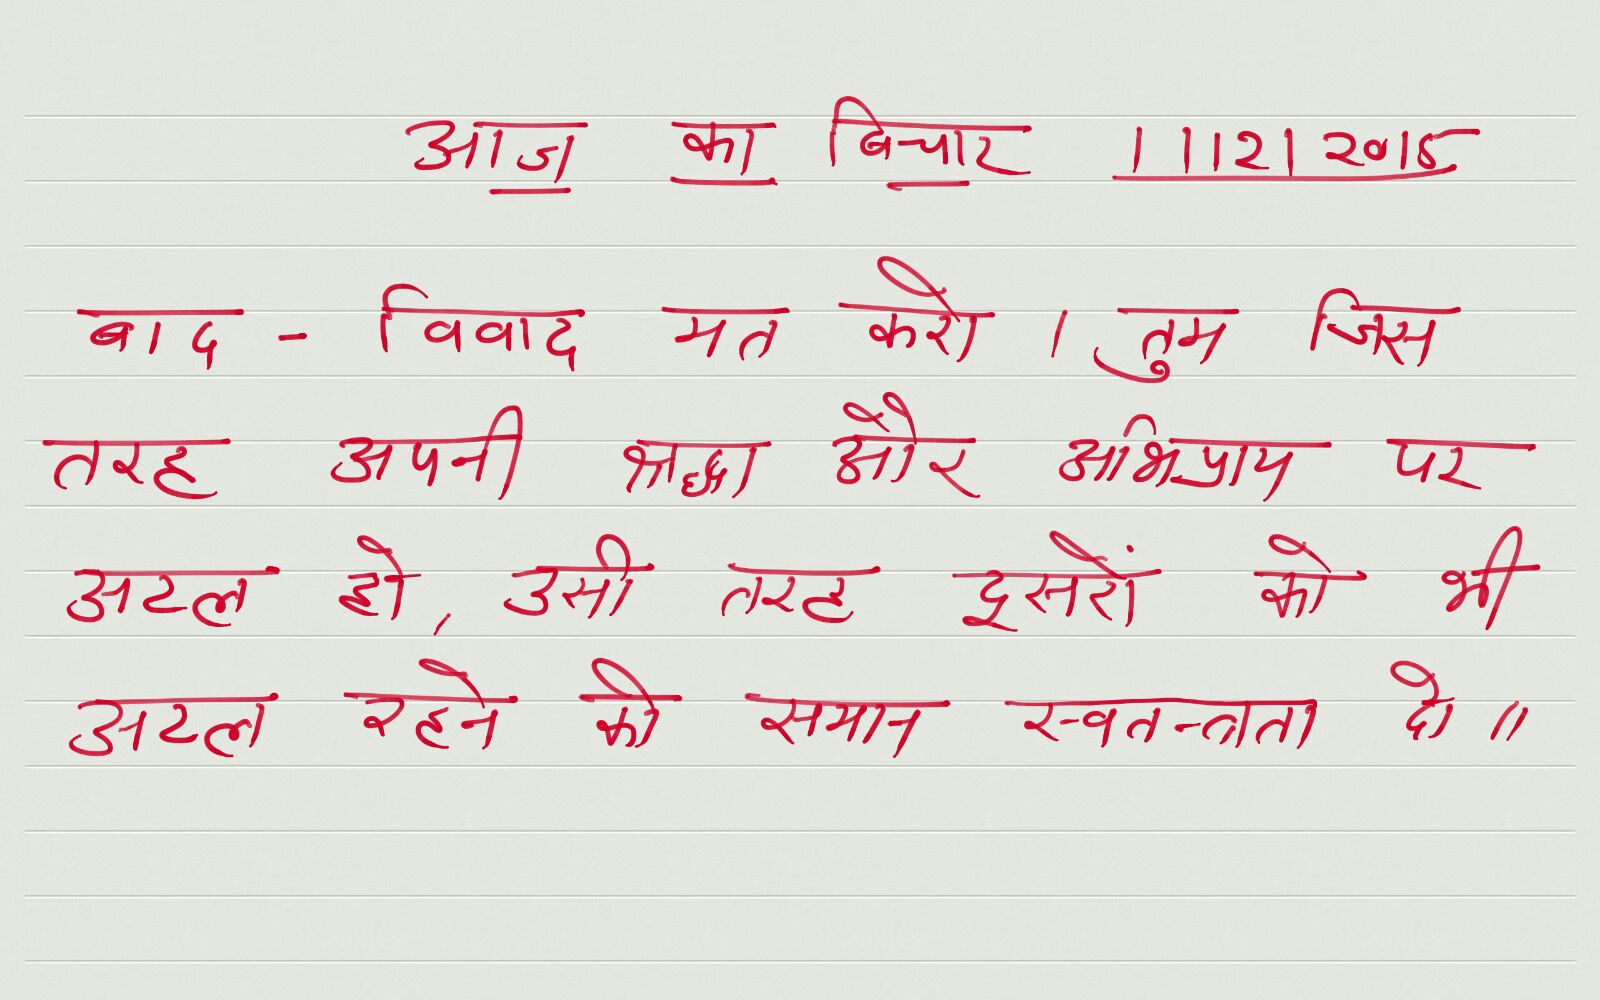 आज का बिचार 1|12|2015
बाद - विवाद मत करो । तुम जिस
तरह अपनी श्रद्धा और अभिप्राय पर
अटल हो, उसी तरह दुसरों को भी
अटल रहने को समान स्वतन्त्रता दो ॥